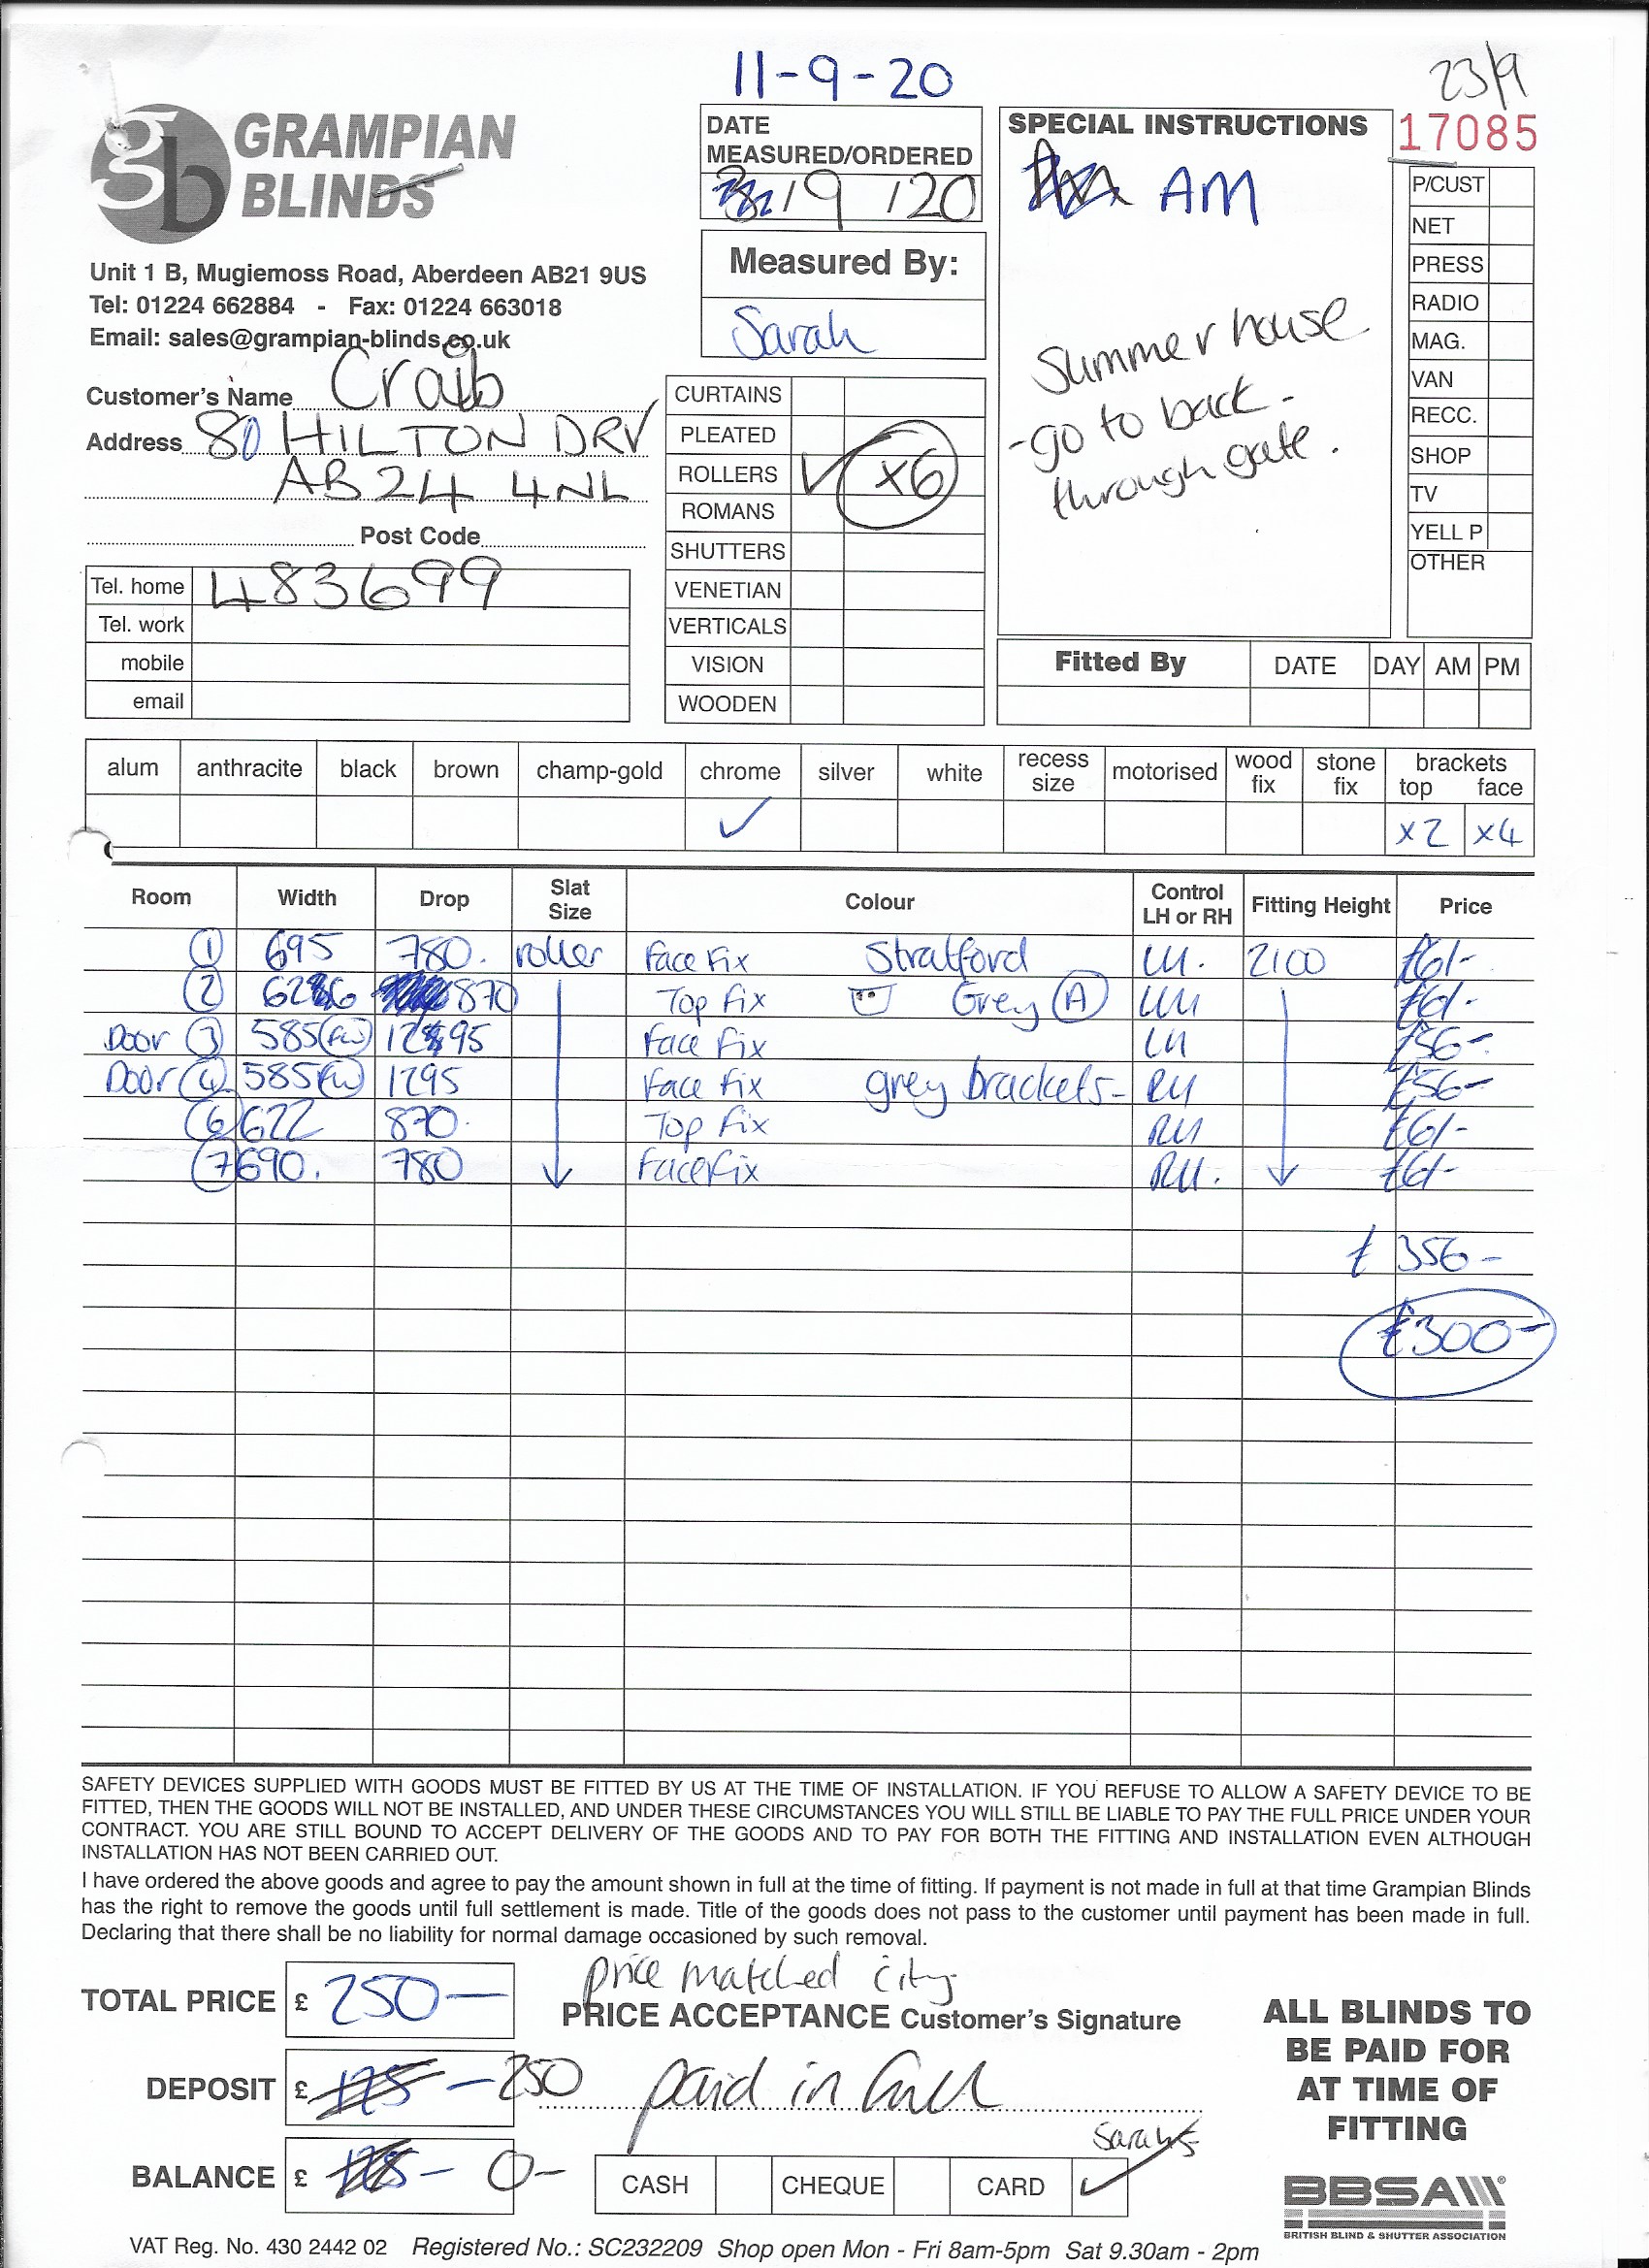 11-9-20
23/9
GRAMPIAN
BLINDS
gb
Unit 1 B, Mugiemoss Road, Aberdeen AB21 9US
Tel: 01224 662884 - Fax: 01224 663018
Email: sales@grampian-blinds.co.uk
Customer's Name Craib
Address 80 HILTON DRV
AB24 4NL
Post Code
Tel. home 483699
Tel. work
mobile
email
DATE
MEASURED/ORDERED
/9/20
Measured By:
Sarah
CURTAINS
PLEATED
ROLLERS ✓ x6
ROMANS
SHUTTERS
VENETIAN
VERTICALS
VISION
WOODEN
SPECIAL INSTRUCTIONS
AM
Summer house
-go to back-
through gate.
17085
P/CUST
NET
PRESS
RADIO
MAG.
VAN
RECC.
SHOP
TV
YELL P
OTHER
Fitted By DATE DAY AM PM
alum anthracite black brown champ-gold chrome silver white recess size motorised wood fix stone fix brackets top face
✓ x2 x4
Room Width Drop Slat Size Colour Control LH or RH Fitting Height Price
1 695 780. roller Face Fix Stratford LH. 2100 £61/-
2 870 Top Fix Grey A LH £61-
Door 3 585 FW 1295 Face Fix LH £56-
Door 4 585 FW 1295 Face Fix grey brackets- RH £56-
6 622 870. Top Fix RH £61/-
7 690. 780 Face Fix RH. £61-
£356-
£300-
SAFETY DEVICES SUPPLIED WITH GOODS MUST BE FITTED BY US AT THE TIME OF INSTALLATION. IF YOU REFUSE TO ALLOW A SAFETY DEVICE TO BE
FITTED, THEN THE GOODS WILL NOT BE INSTALLED, AND UNDER THESE CIRCUMSTANCES YOU WILL STILL BE LIABLE TO PAY THE FULL PRICE UNDER YOUR
CONTRACT. YOU ARE STILL BOUND TO ACCEPT DELIVERY OF THE GOODS AND TO PAY FOR BOTH THE FITTING AND INSTALLATION EVEN ALTHOUGH
INSTALLATION HAS NOT BEEN CARRIED OUT.
I have ordered the above goods and agree to pay the amount shown in full at the time of fitting. If payment is not made in full at that time Grampian Blinds
has the right to remove the goods until full settlement is made. Title of the goods does not pass to the customer until payment has been made in full.
Declaring that there shall be no liability for normal damage occasioned by such removal.
TOTAL PRICE £ 250-
price matched city
PRICE ACCEPTANCE Customer's Signature
DEPOSIT £ 125 - 250
paid in full
Sarah
BALANCE £ - 0-
CASH CHEQUE CARD ✓
ALL BLINDS TO
BE PAID FOR
AT TIME OF
FITTING
BBSA
BRITISH BLIND & SHUTTER ASSOCIATION
VAT Reg. No. 430 2442 02 Registered No.: SC232209 Shop open Mon - Fri 8am-5pm Sat 9.30am - 2pm